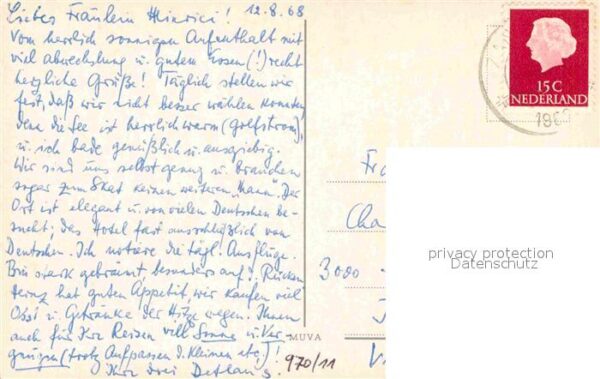 Liebes Fräulein Heinrici! 12.8.68
Vom herrlich sonnigen Aufenthalt mit
viel Abwechslung u. gutem Essen (!) recht
herzliche Grüße! Täglich stellen wir
fest, daß wir nicht besser wählen konnten
denn die See ist herrlich warm (Golfstrom),
u. ich bade genüßlich u. ausgiebig.
Wir sind uns selbst genug u. brauchen
sogar zum Skat keinen weiteren "Mann". Der
Ort ist elegant u. von vielen Deutschen be-
sucht; das Hotel fast ausschließlich von
Deutschen. Ich notiere die tägl. Ausflüge.
Bin stark gebräunt, besonders auf d. Rücken
hat guten Appetit, wir kaufen viel
Obst u. Getränke der Hitze wegen. Ihnen
auch für Ihre Reisen viel Sonne u. Ver-
gnügen (trotz Aufpassen d. Kleinen etc.)!
Ihre drei
970/11
MUVA
15 C
NEDERLAND
Fr
Cha
3000
privacy protection
Datenschutz